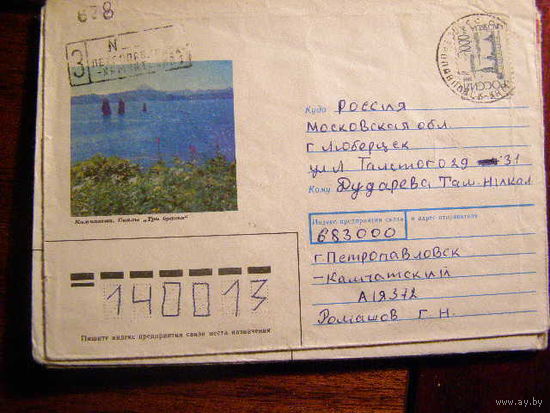 678
З N
Россия
Куда Россия
Московская обл
г Люберецк
ул Л Талстого 29 31
Кому Дударева
Камчатка. Скалы „Три брата“
Индекс предприятия связи и адрес отправителя
683000
г. Петропавловск
-Камчатский
А 19372
Ромашов Г. Н.
140013
Пишите индекс предприятия связи места назначения
www.ay.by